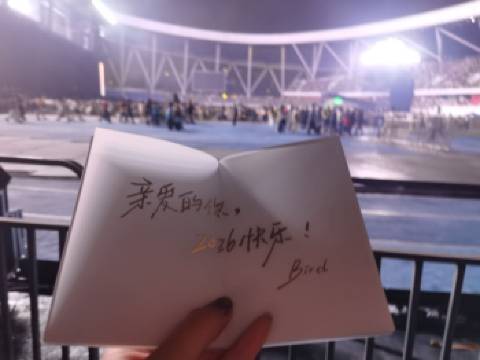 亲爱的你，
2026快乐！
Bird